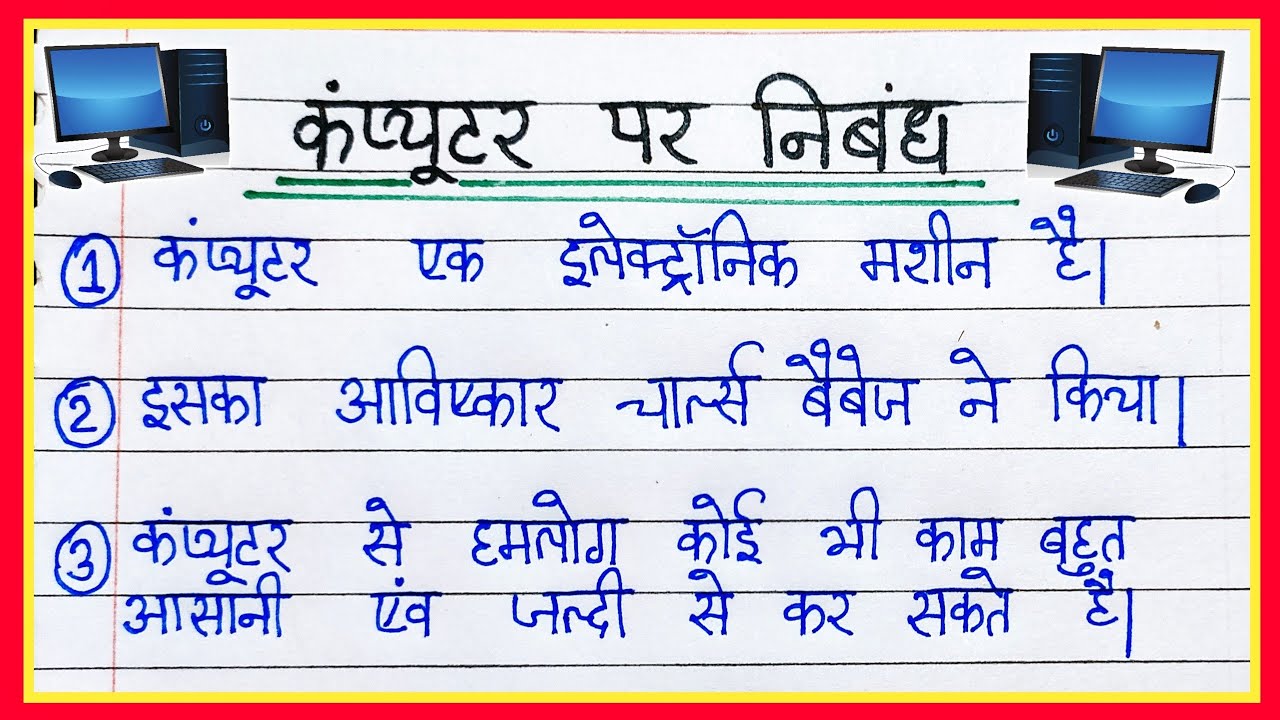 कंप्यूटर पर निबंध
① कंप्यूटर एक इलेक्ट्रॉनिक मशीन है।
② इसका आविष्कार चार्ल्स बैबेज ने किया।
③ कंप्यूटर से हमलोग कोई भी काम बहुत
आसानी एंव जल्दी से कर सकते है।